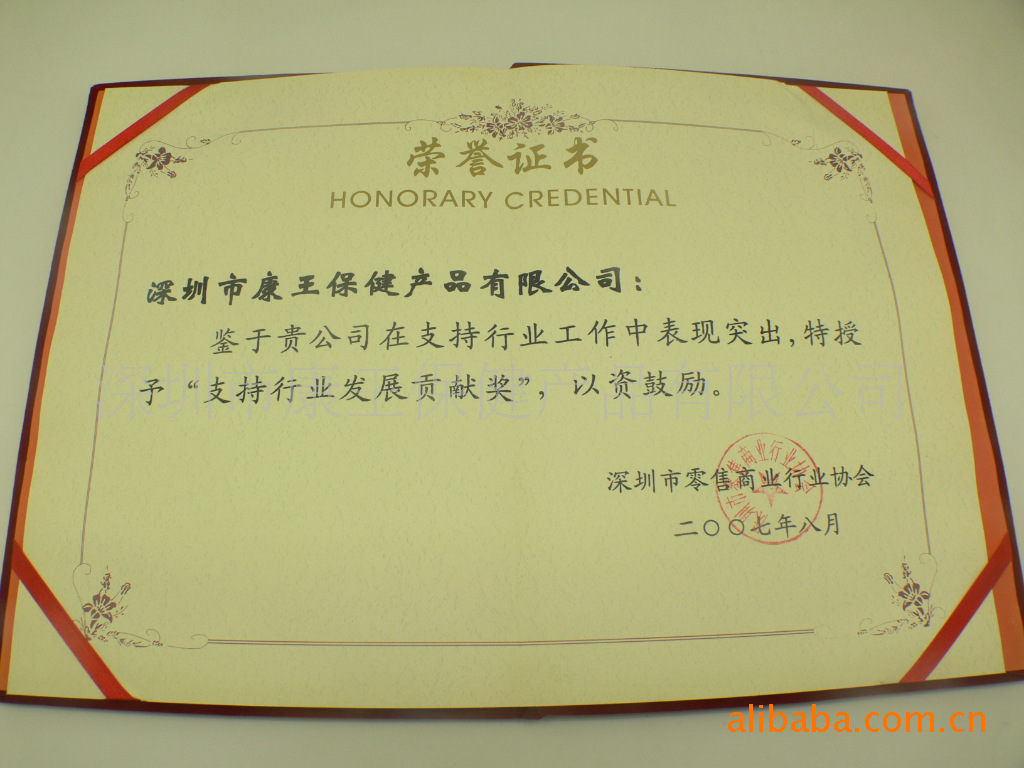 荣誉证书
HONORARY CREDENTIAL
深圳市康王保健产品有限公司：
鉴于贵公司在支持行业工作中表现突出，特授
予“支持行业发展贡献奖”，以资鼓励。
深圳市康王保健产品有限公司
深圳市零售商业行业协会
二〇〇七年八月
深圳市零售商业行业协会
alibaba.com.cn